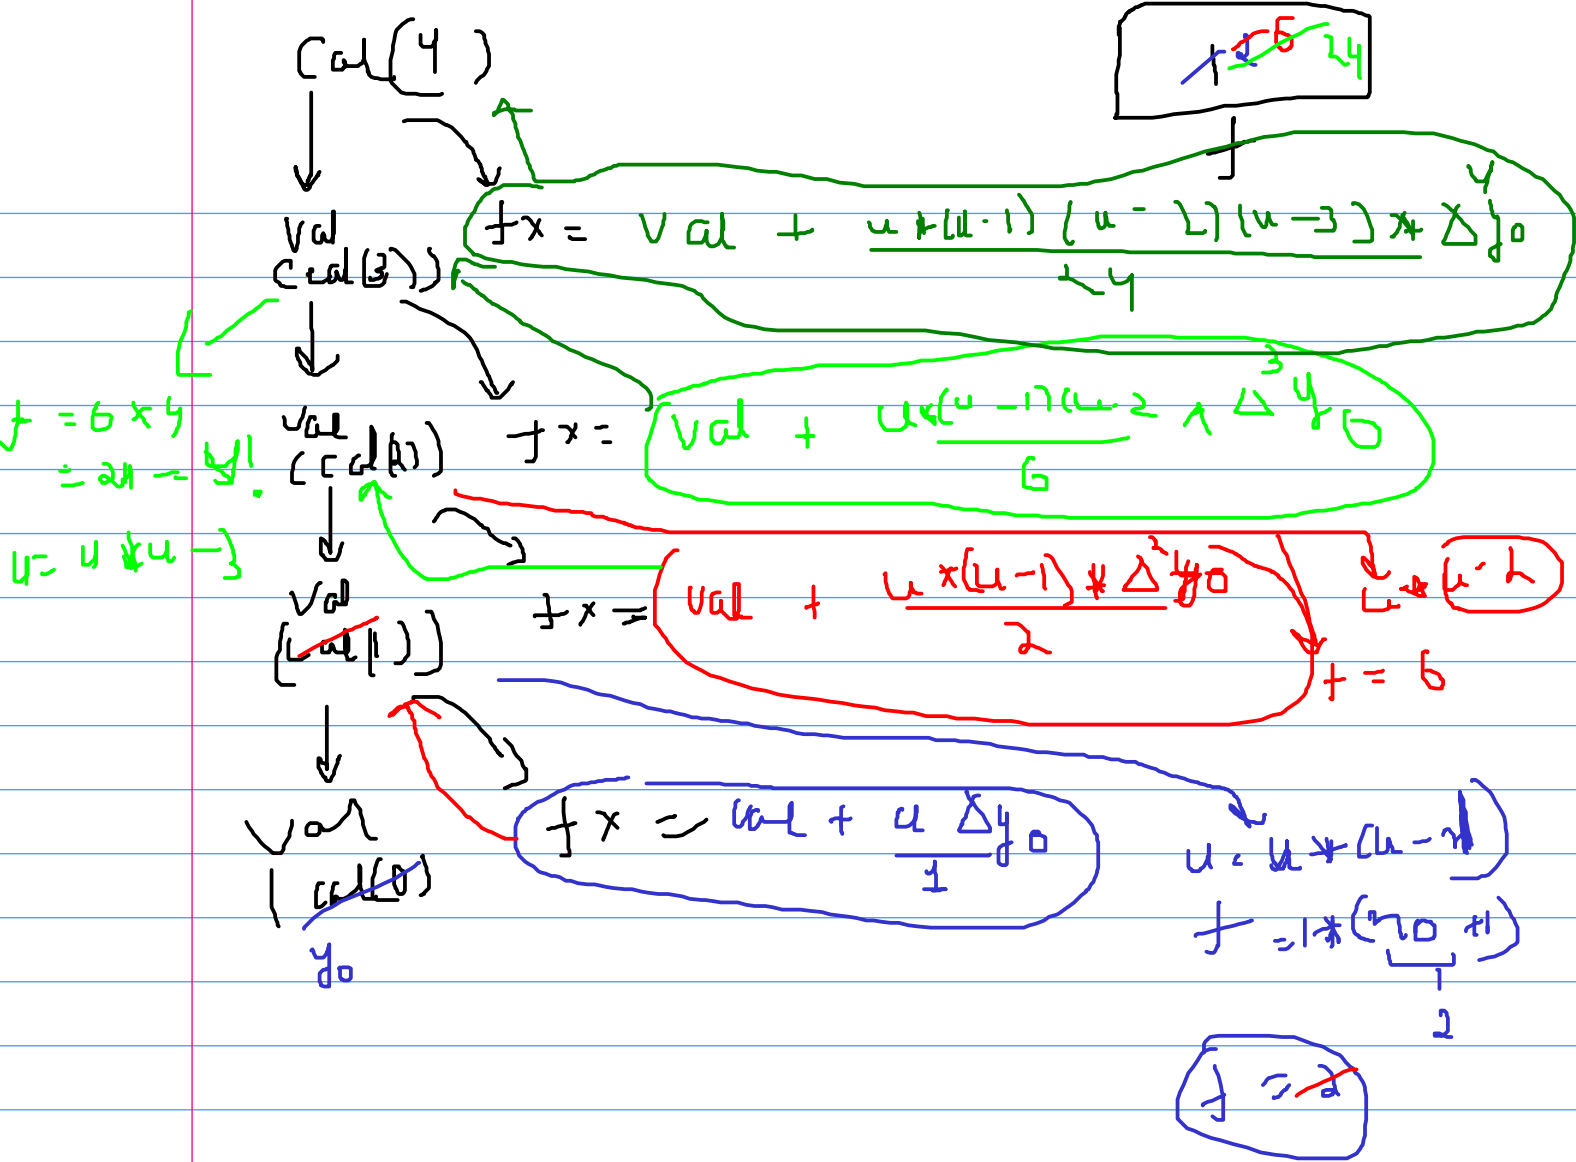 Cal(4)
1 2 6 24
f
Val
Cal(3))
fx = Val + u*(u-1)(u-2)(u-3)* Δ⁴y0
24
f = 6 x 4
= 24 - 4!
u = u * u - 3
Val
(Cal(2))
fx = Val + u*(u-1)(u-2 * Δ³y0
6
Val
(Cal(1))
fx = Val + u*(u-1)* Δ²y0
2
u * u-2
f = 6
Val
(Cal(0))
y0
fx = Val + u Δy0
1
u = u * (u-1)
f = 1 * (n0 + 1)
2
f = 2